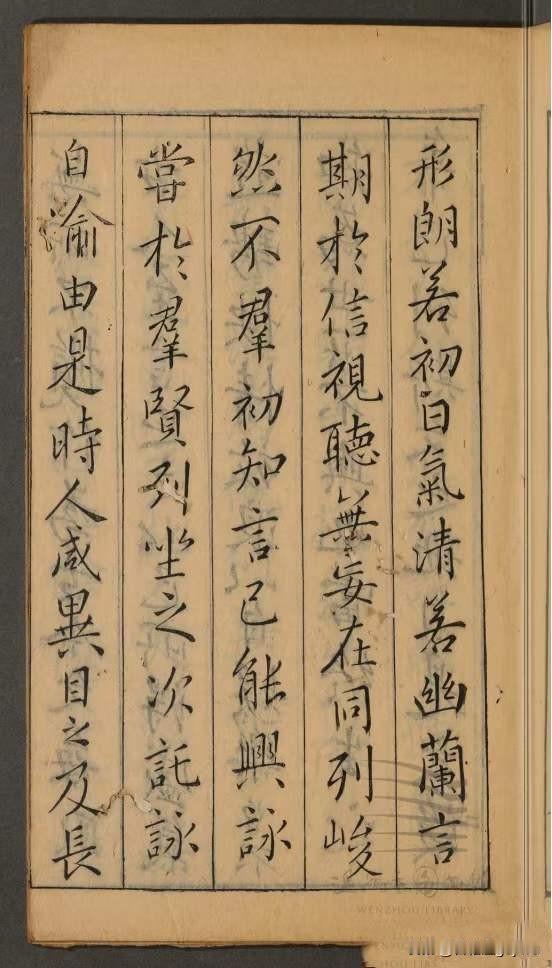 形朗若初日氣清若幽蘭言
期於信視聽無妄在同列峻
然不羣初知言已能興詠
嘗於羣賢列坐之次託詠
自渝由是時人咸異目之及長
WENZHOU LIBRARY